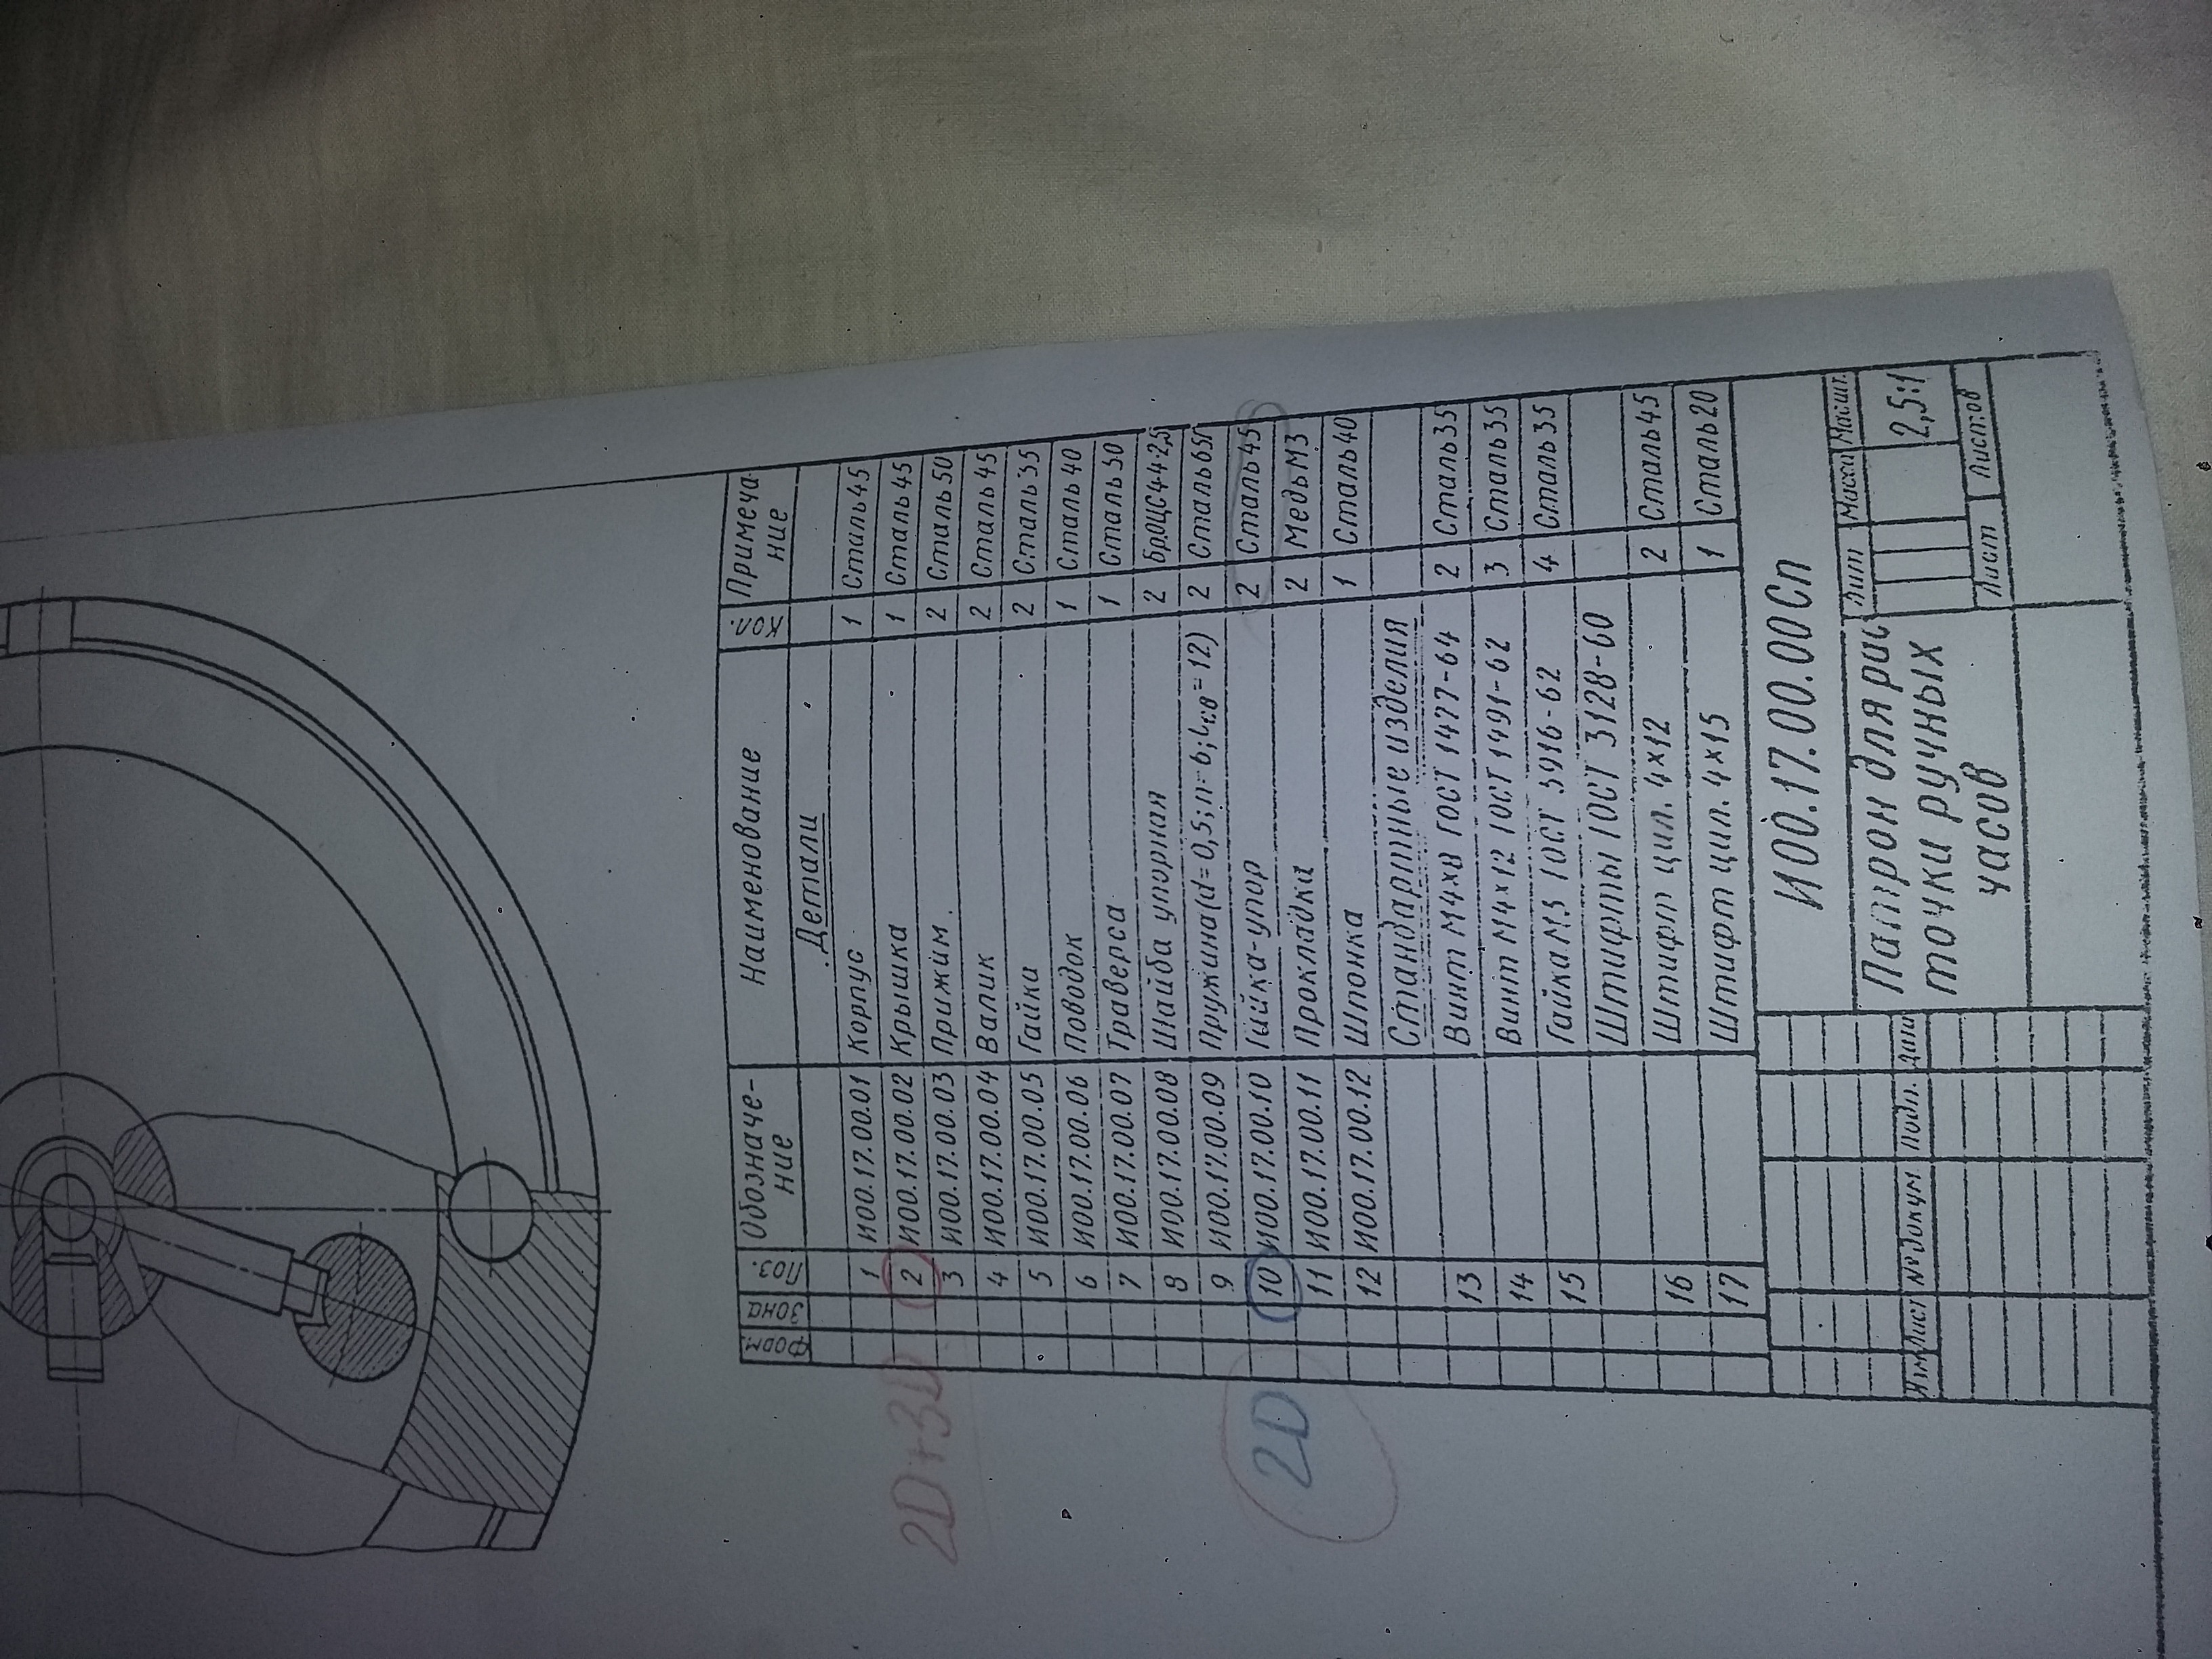 Форм. Зона Поз. Обозначе- Наименование Кол. Примеча-
ние ние
Детали
1 И00.17.00.01 Корпус 1 Сталь 45
2 И00.17.00.02 Крышка 1 Сталь 45
3 И00.17.00.03 Прижим 2 Сталь 50
4 И00.17.00.04 Валик 2 Сталь 45
5 И00.17.00.05 Гайка 2 Сталь 35
6 И00.17.00.06 Поводок 1 Сталь 40
7 И00.17.00.07 Траверса 1 Сталь 50
8 И00.17.00.08 Шайба упорная 2 Бр.ОЦС4-4-2,5
9 И00.17.00.09 Пружина(d=0,5; n=6; Lсв=12) 2 Сталь 65Г
10 И00.17.00.10 Гайка-упор 2 Сталь 45
11 И00.17.00.11 Прокладка 2 Медь М3
12 И00.17.00.12 Шпонка 1 Сталь 40
Стандартные изделия
13 Винт М4×8 ГОСТ 1477-64 2 Сталь 35
14 Винт М4×12 ГОСТ 1491-62 3 Сталь 35
15 Гайка М3 ГОСТ 5916-62 4 Сталь 35
Штифты ГОСТ 3128-60
16 Штифт цил. 4×12 2 Сталь 45
17 Штифт цил. 4×15 1 Сталь 20
2D+3D
2D
И00.17.00.00Сп
Изм Лист № докум Подп. Дата
Патрон для рас
точки ручных
часов
Лит Масса Масшт.
2,5:1
Лист Листов